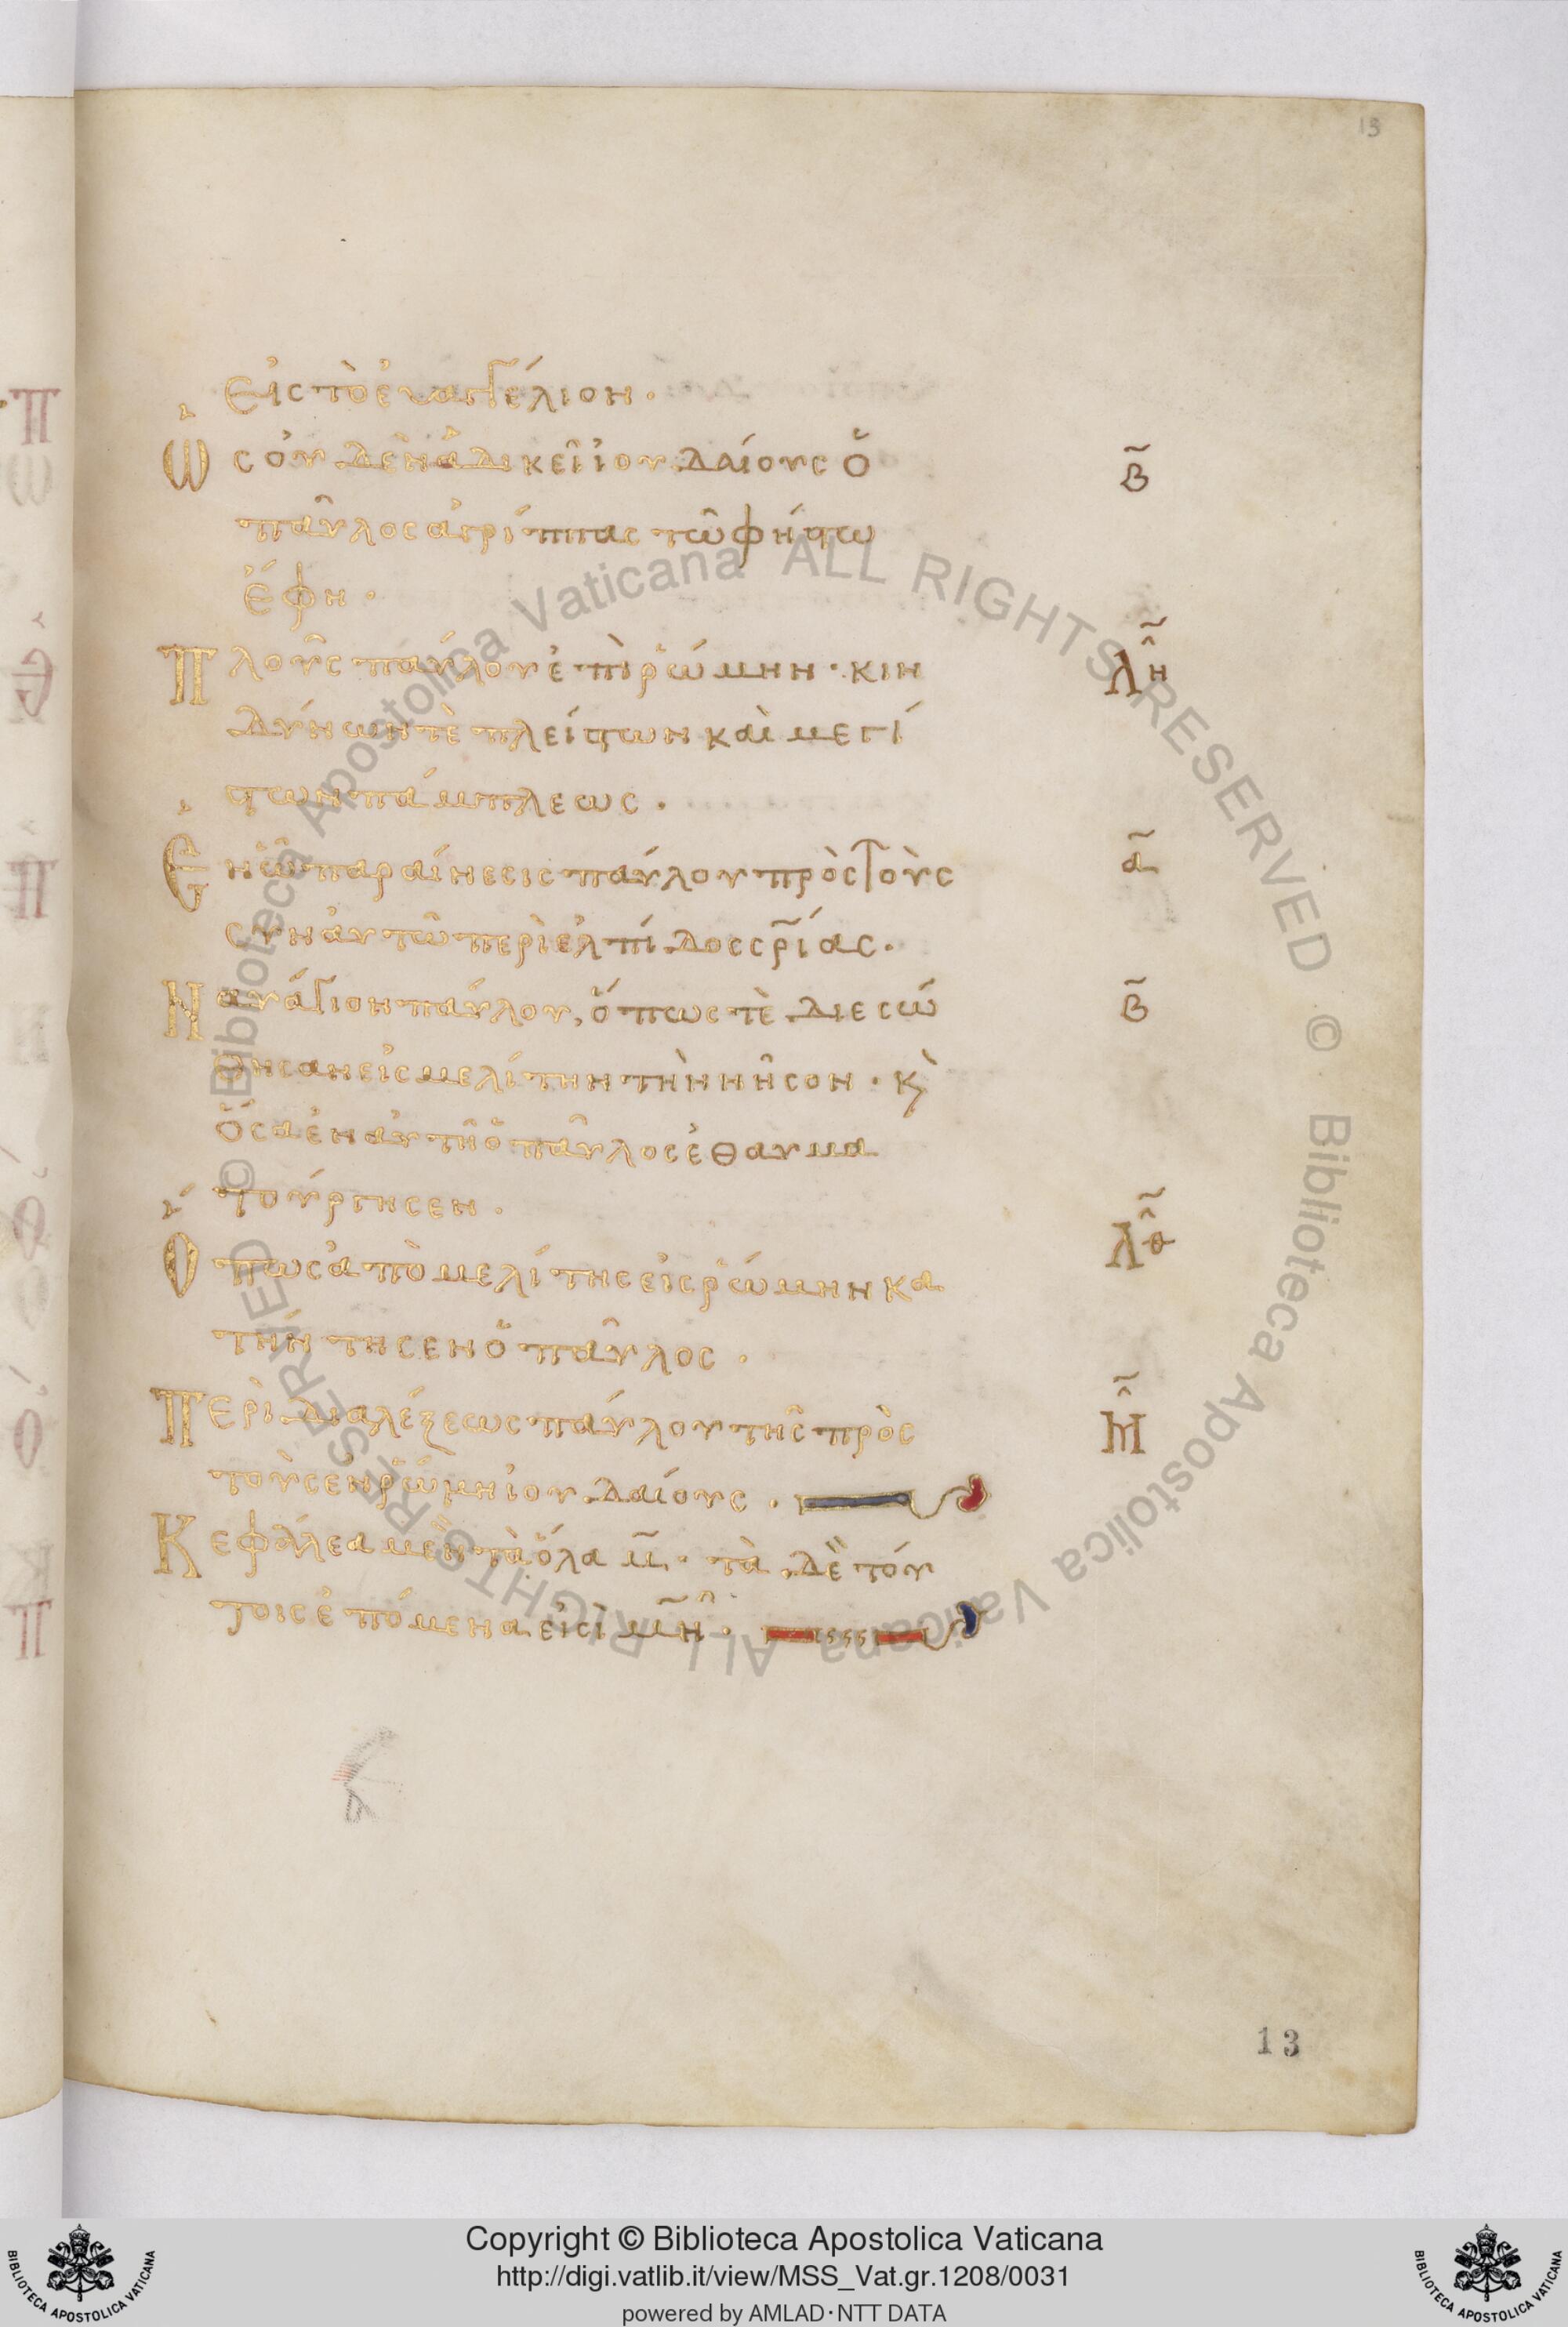 13
Εἰς τὸ ἐυαγγέλιον.
Ὡς οὐδὲν ἀδικεῖ ἰουδαίους ὁ
β̃
παῦλος ἀγρίππας τῶ φήστω
ἔφη.
Πλοῦς παύλου ἐπὶ ῥώμην · κιν
λη̃
δύνων τὲ πλείστων καὶ μεγί
στων πάμπλεως.
Ἐν ὧ παραίνεσις παύλου πρὸς τοὺς
α̃
σὺν ἀυτῶ περὶ ἐλπίδος σρ̃ίας.
Ναυάγιον παύλου, ὅπως τὲ διεσώ
β̃
θησαν εἰς μελίτην τὴν νῆσον · κ̀
ὅσα ἐν αὐτῆ ὁ παῦλος ἐθαυμα
τούργησεν.
Ὅπως ἀπὸ μελίτης εἰς ῥώμην κα
λθ̃
τήντησεν ὁ παῦλος.
Περὶ διαλέξεως παύλου τῆς πρὸς
μ̃
τοὺς ἐν ῥώμη ἰουδαίους.
Κεφάλεα μὲν τὰ ὅλα μ̃ · τὰ δὲ τού
τοις ἑπόμενα εἰσὶ μ̃η̃ ·
13
© Biblioteca Apostolica Vaticana ALL RIGHTS RESERVED © Biblioteca Apostolica Vaticana ALL RIGHTS RESERVED
BIBLIOTECA APOSTOLICA VATICANA
Copyright © Biblioteca Apostolica Vaticana
http://digi.vatlib.it/view/MSS_Vat.gr.1208/0031
powered by AMLAD·NTT DATA
BIBLIOTECA APOSTOLICA VATICANA